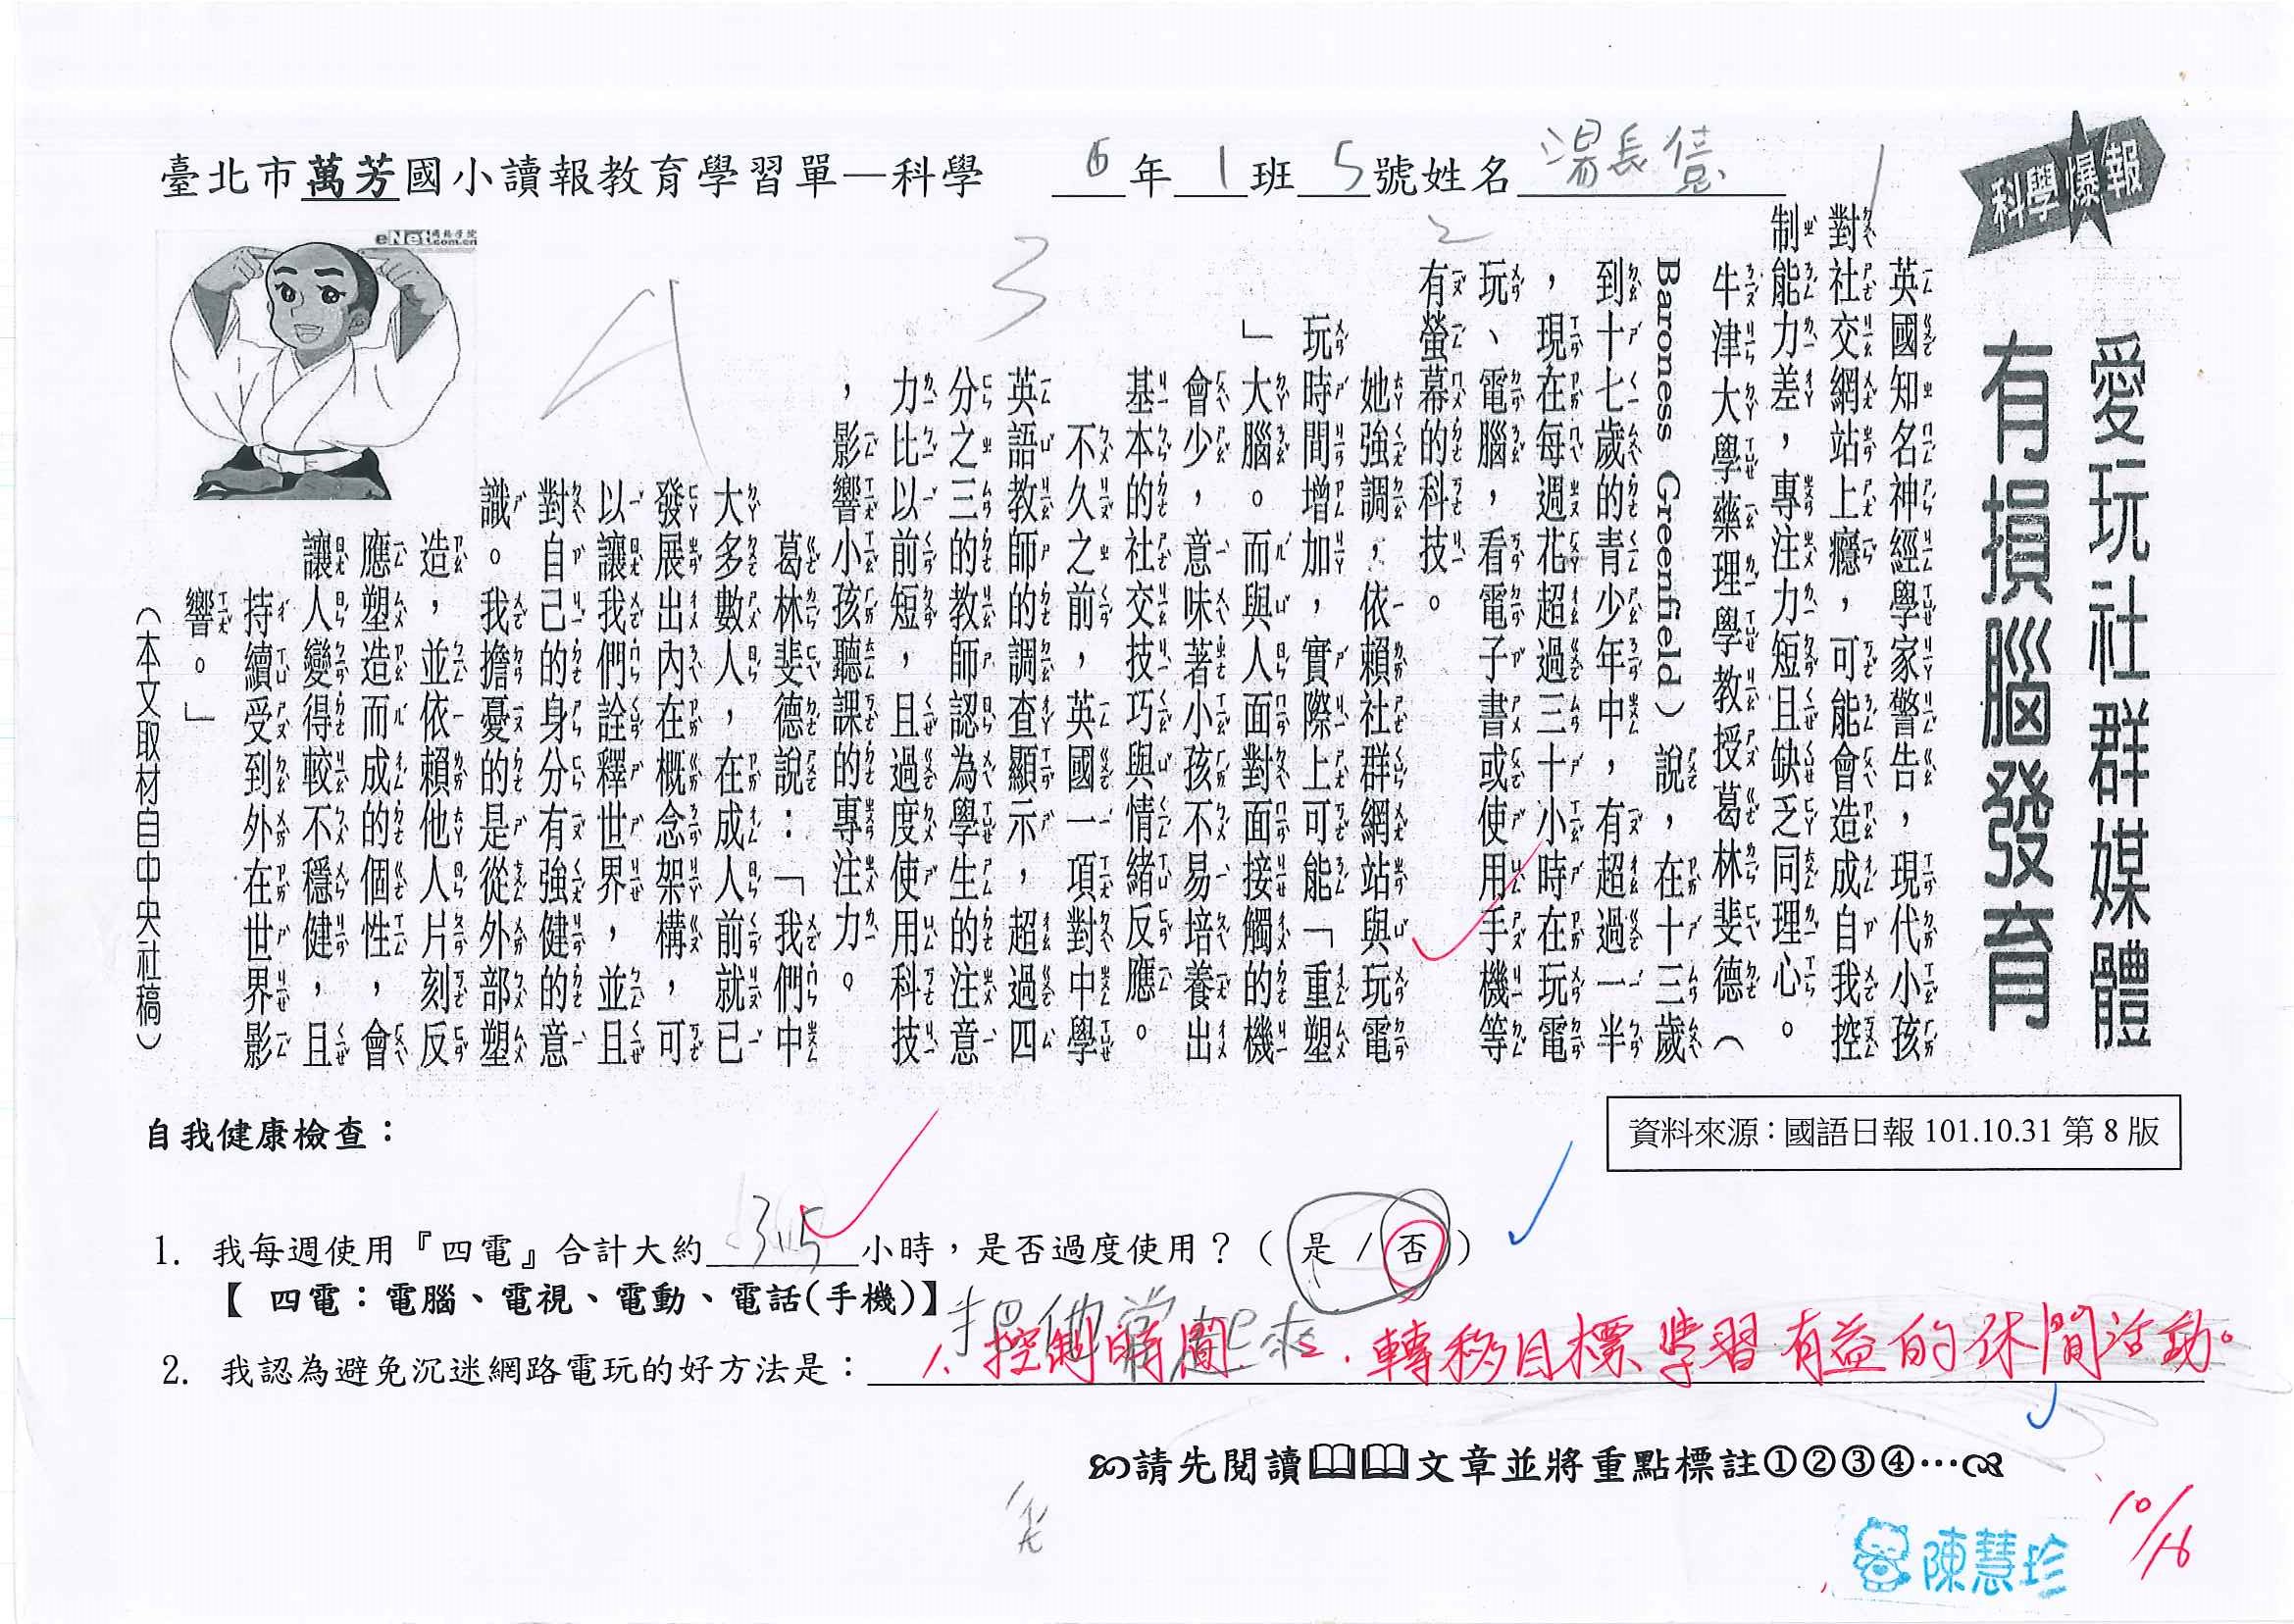 臺北市萬芳國小讀報教育學習單—科學 6年1班5號姓名湯長億
科學爆報
1
愛玩社群媒體
有損腦發育
英國知名神經學家警告，現代小孩
對社交網站上癮，可能會造成自我控
制能力差，專注力短且缺乏同理心。
牛津大學藥理學教授葛林斐德（
Baroness Greenfield）說，在十三歲
到十七歲的青少年中，有超過一半
，現在每週花超過三十小時在玩電
玩、電腦，看電子書或使用手機等
有螢幕的科技。
2
她強調，依賴社群網站與玩電
玩時間增加，實際上可能「重塑
大腦。而與人面對面接觸的機
」
會少，意味著小孩不易培養出
基本的社交技巧與情緒反應。
不久之前，英國一項對中學
英語教師的調查顯示，超過四
分之三的教師認為學生的注意
力比以前短，且過度使用科技
，影響小孩聽課的專注力。
3
葛林斐德說：「我們中
大多數人，在成人前就已
發展出內在概念架構，可
以讓我們詮釋世界，並且
對自己的身分有強健的意
識。我擔憂的是從外部塑
造，並依賴他人片刻反
應塑造而成的個性，會
讓人變得較不穩健，且
持續受到外在世界影
響。」
4
（本文取材自中央社稿）
eNet
.com.cn
資料來源：國語日報 101.10.31 第 8 版
自我健康檢查：
1. 我每週使用『四電』合計大約3.5小時，是否過度使用？（是 / 否）
【 四電：電腦、電視、電動、電話(手機)】
把他當起來
2. 我認為避免沉迷網路電玩的好方法是：1.控制時間 2.轉移目標學習有益的休閒活動。
請先閱讀文章並將重點標註①②③④…
陳慧珍
10/16